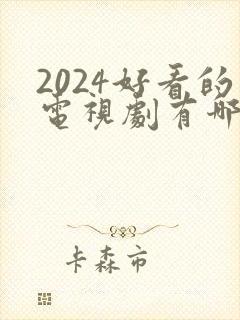 2024好看的
電視劇有哪
卡森市